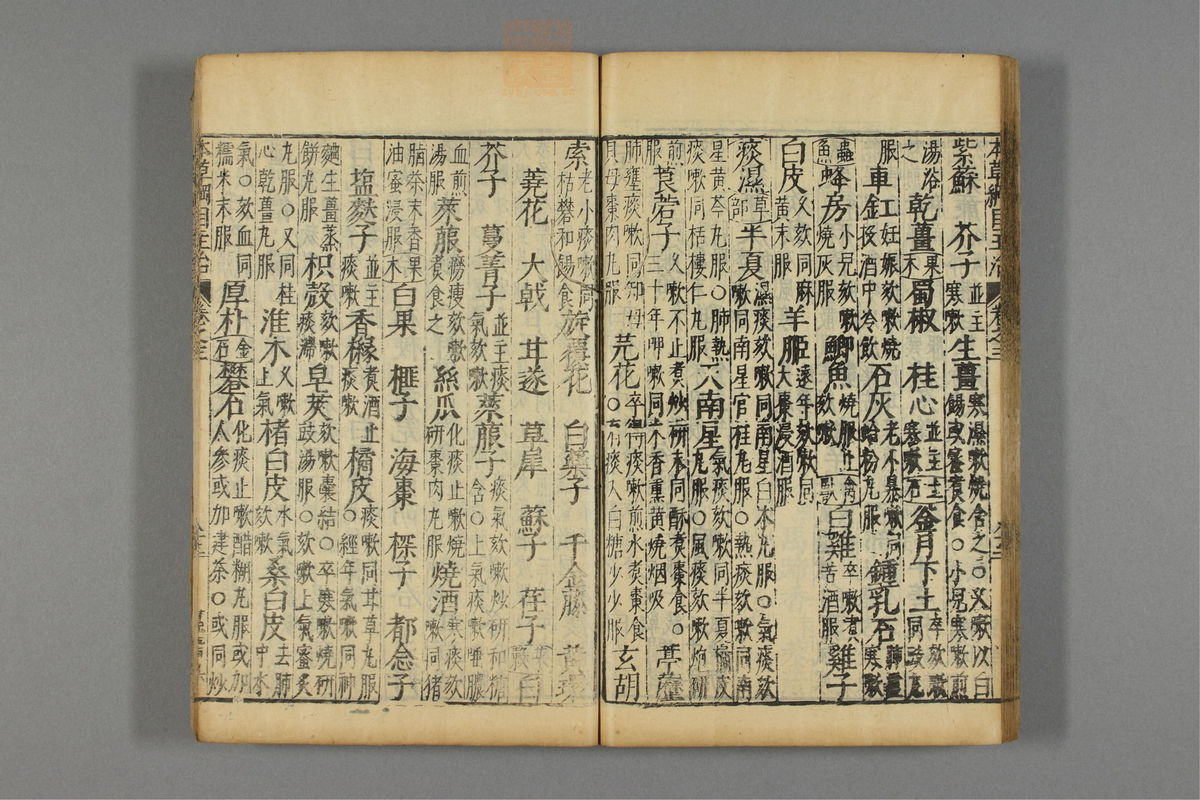 本草綱目主治 卷之三
紫蘇 芥子並主寒嗽 生薑寒濕嗽燒含之○久嗽以白餳或蜜煮食○小兒寒嗽煎
湯浴之 乾薑果木蜀椒 桂心並主寒嗽土石釜月下土卒欬嗽同豉丸
服 車缸工妊娠欬嗽燒投酒中冷飲 石灰老小暴嗽同蛤粉丸服 鍾乳石肺虛寒嗽
蟲魚蜂房小兒欬嗽燒灰服 鯽魚燒服止欬嗽禽獸白雞卒嗽煮苦酒服 雞子
白皮久欬同麻黃末服 羊胰遠年欬嗽同大棗浸酒服
痰濕草部半夏濕痰欬嗽同南星白朮丸服○氣痰欬嗽同南星官桂丸服○熱痰欬嗽同南
星黃芩丸服○肺熱痰嗽同栝樓仁丸服 天南星氣痰欬嗽同半夏橘皮丸服○風痰欬嗽炮研
煎服 莨菪子久嗽不止煮炒研末同酥煮棗食○三十年呷嗽同木香熏黃燒烟吸 葶藶
肺壅痰嗽同知母貝母棗肉丸服 芫花卒得痰嗽煎水煮棗食○有痰入白糖少少服 玄胡
索老小痰嗽同枯礬和餳食 旋覆花 白藥子 千金藤
蕘花 大戟 甘遂 草犀 蘇子 荏子菜白
芥子 蔓菁子並主痰氣欬嗽 萊菔子痰氣欬嗽炒研和糖含○上氣痰嗽唾膿
血煎湯服 萊菔癆瘦欬嗽煮食之 絲瓜化痰止嗽燒研棗肉丸服 燒酒寒痰欬嗽同猪
脂茶末香油蜜浸服果木白果 榧子 海棗 㮏子 都念子
塩麩子並主痰嗽 香櫞煮酒止痰嗽 橘皮○痰嗽同甘草丸服○經年氣嗽同神
麯生薑蒸餅丸服 枳殼欬嗽痰滯 皂莢欬嗽囊結○卒寒嗽燒研豉湯服○欬嗽上氣蜜炙
丸服○又同桂心乾薑丸服 淮木久嗽上氣 楮白皮水氣欬嗽 桑白皮去肺中水
氣○欬血同糯米末服 厚朴金石礬石化痰止嗽醋糊丸服或加人參或加建茶○或同炒
本草綱目主治 卷之三